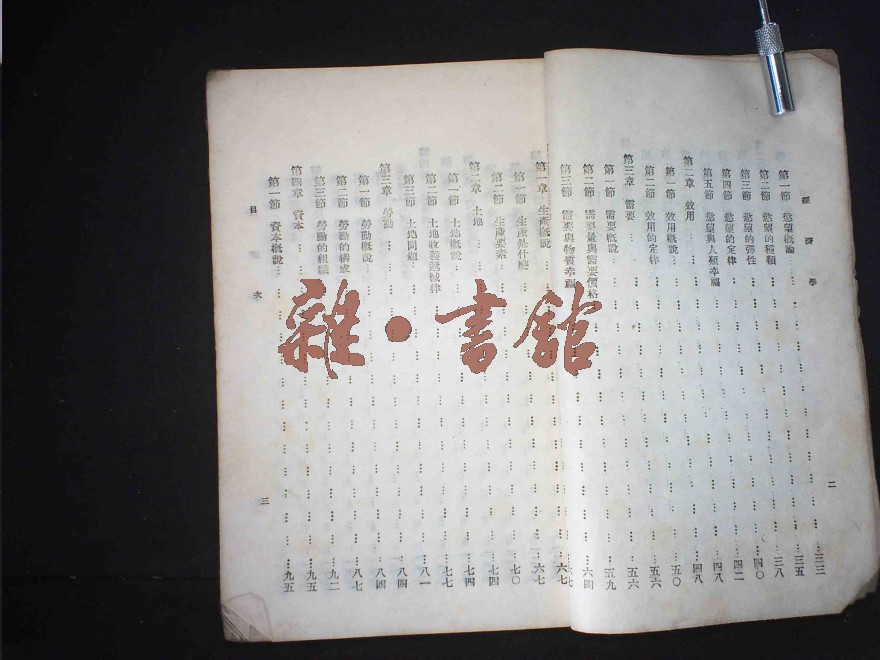 經濟學 二
第一節 慾望概論 三三
第二節 慾望的種類 三五
第三節 慾望的彈性 三八
第四節 慾望的定律 四〇
第五節 慾望與人類幸福 四二
第二章 效用 四八
第一節 效用概說 四八
第二節 效用的定律 五〇
第三章 需要 五六
第一節 需要概說 五六
第二節 需要量與需要價格 五九
第三節 需要與物質幸福 六四
第一章 生產概說 六七
第一節 生產是什麼 六七
第二節 生產要素 七〇
第二章 土地 七四
第一節 土地概說 七四
第二節 土地收穫遞減律 七七
第三節 土地問題 八一
第三章 勞動 八四
第一節 勞動概說 八四
第二節 勞動的構成 八七
第三節 勞動的組織 九二
第四章 資本 九五
第一節 資本概說 九五
目次 三
雜·書館